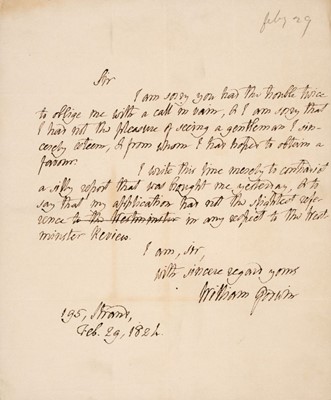 feby 29
Sir
I am sorry you had the trouble twice
to oblige me with a call in vain, & I am sorry that
I had not the pleasure of seeing a gentleman I sin-
cerely esteem, & from whom I had hoped to obtain a
favour.
I write this line merely to contradict
a silly report that was brought me yesterday, & to
say that my application had not the slightest refe-
rence to the Westminster in any respect to the West
minster Review.
I am, Sir,
with sincere regard yours
William Godwin
195, Strand,
Feb. 29, 1824.